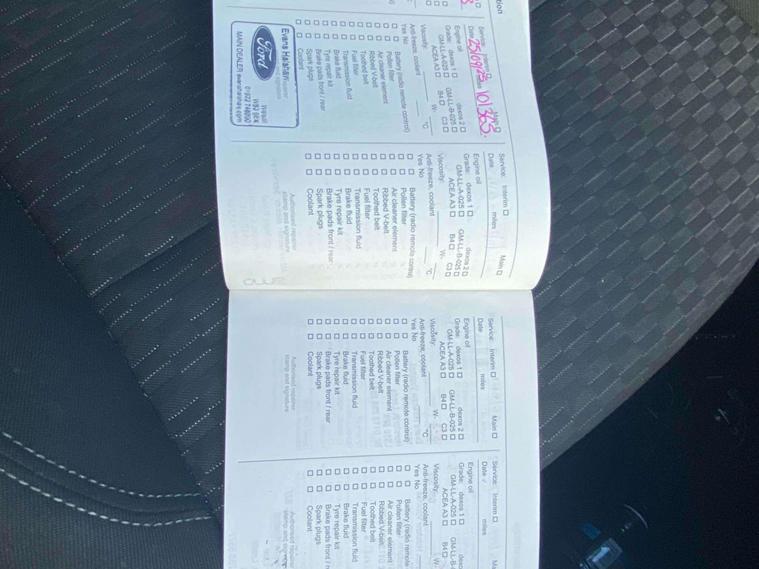 Service: Interim Main
Date 25/09/23 miles 101365.
Engine oil
Grade: dexos 1 dexos 2
GM-LL-A-025 GM-LL-B-025
ACEA A3 B4 C3
Viscosity: W- °C
Anti-freeze, coolant
Yes No
Battery (radio remote control)
Pollen filter
Air cleaner element
Ribbed V-belt
Toothed belt
Fuel filter
Transmission fluid
Brake fluid
Tyre repair kit
Brake pads front / rear
Spark plugs
Coolant
Evans Halshaw
Ford
Walsall
MAIN DEALER evanshalshaw.com
Service: Interim Main
Date miles
Engine oil
Grade: dexos 1 dexos 2
GM-LL-A-025 GM-LL-B-025
ACEA A3 B4 C3
Viscosity: W- °C
Anti-freeze, coolant
Yes No
Battery (radio remote control)
Pollen filter
Air cleaner element
Ribbed V-belt
Toothed belt
Fuel filter
Transmission fluid
Brake fluid
Tyre repair kit
Brake pads front / rear
Spark plugs
Coolant
Authorised repairer
stamp and signature
Service: Interim Main
Date miles
Engine oil
Grade: dexos 1 dexos 2
GM-LL-A-025 GM-LL-B-025
ACEA A3 B4 C3
Viscosity: W- °C
Anti-freeze, coolant
Yes No
Battery (radio remote control)
Pollen filter
Air cleaner element
Ribbed V-belt
Toothed belt
Fuel filter
Transmission fluid
Brake fluid
Tyre repair kit
Brake pads front / rear
Spark plugs
Coolant
Authorised repairer
stamp and signature
Service: Interim
Date miles
Engine oil
Grade: dexos 1
GM-LL-A-025
ACEA A3 B4
Viscosity: W-
Anti-freeze, coolant
Yes No
Battery (radio remote
Pollen filter
Air cleaner element
Ribbed V-belt
Toothed belt
Fuel filter
Transmission fluid
Brake fluid
Tyre repair kit
Brake pads front /
Spark plugs
Coolant